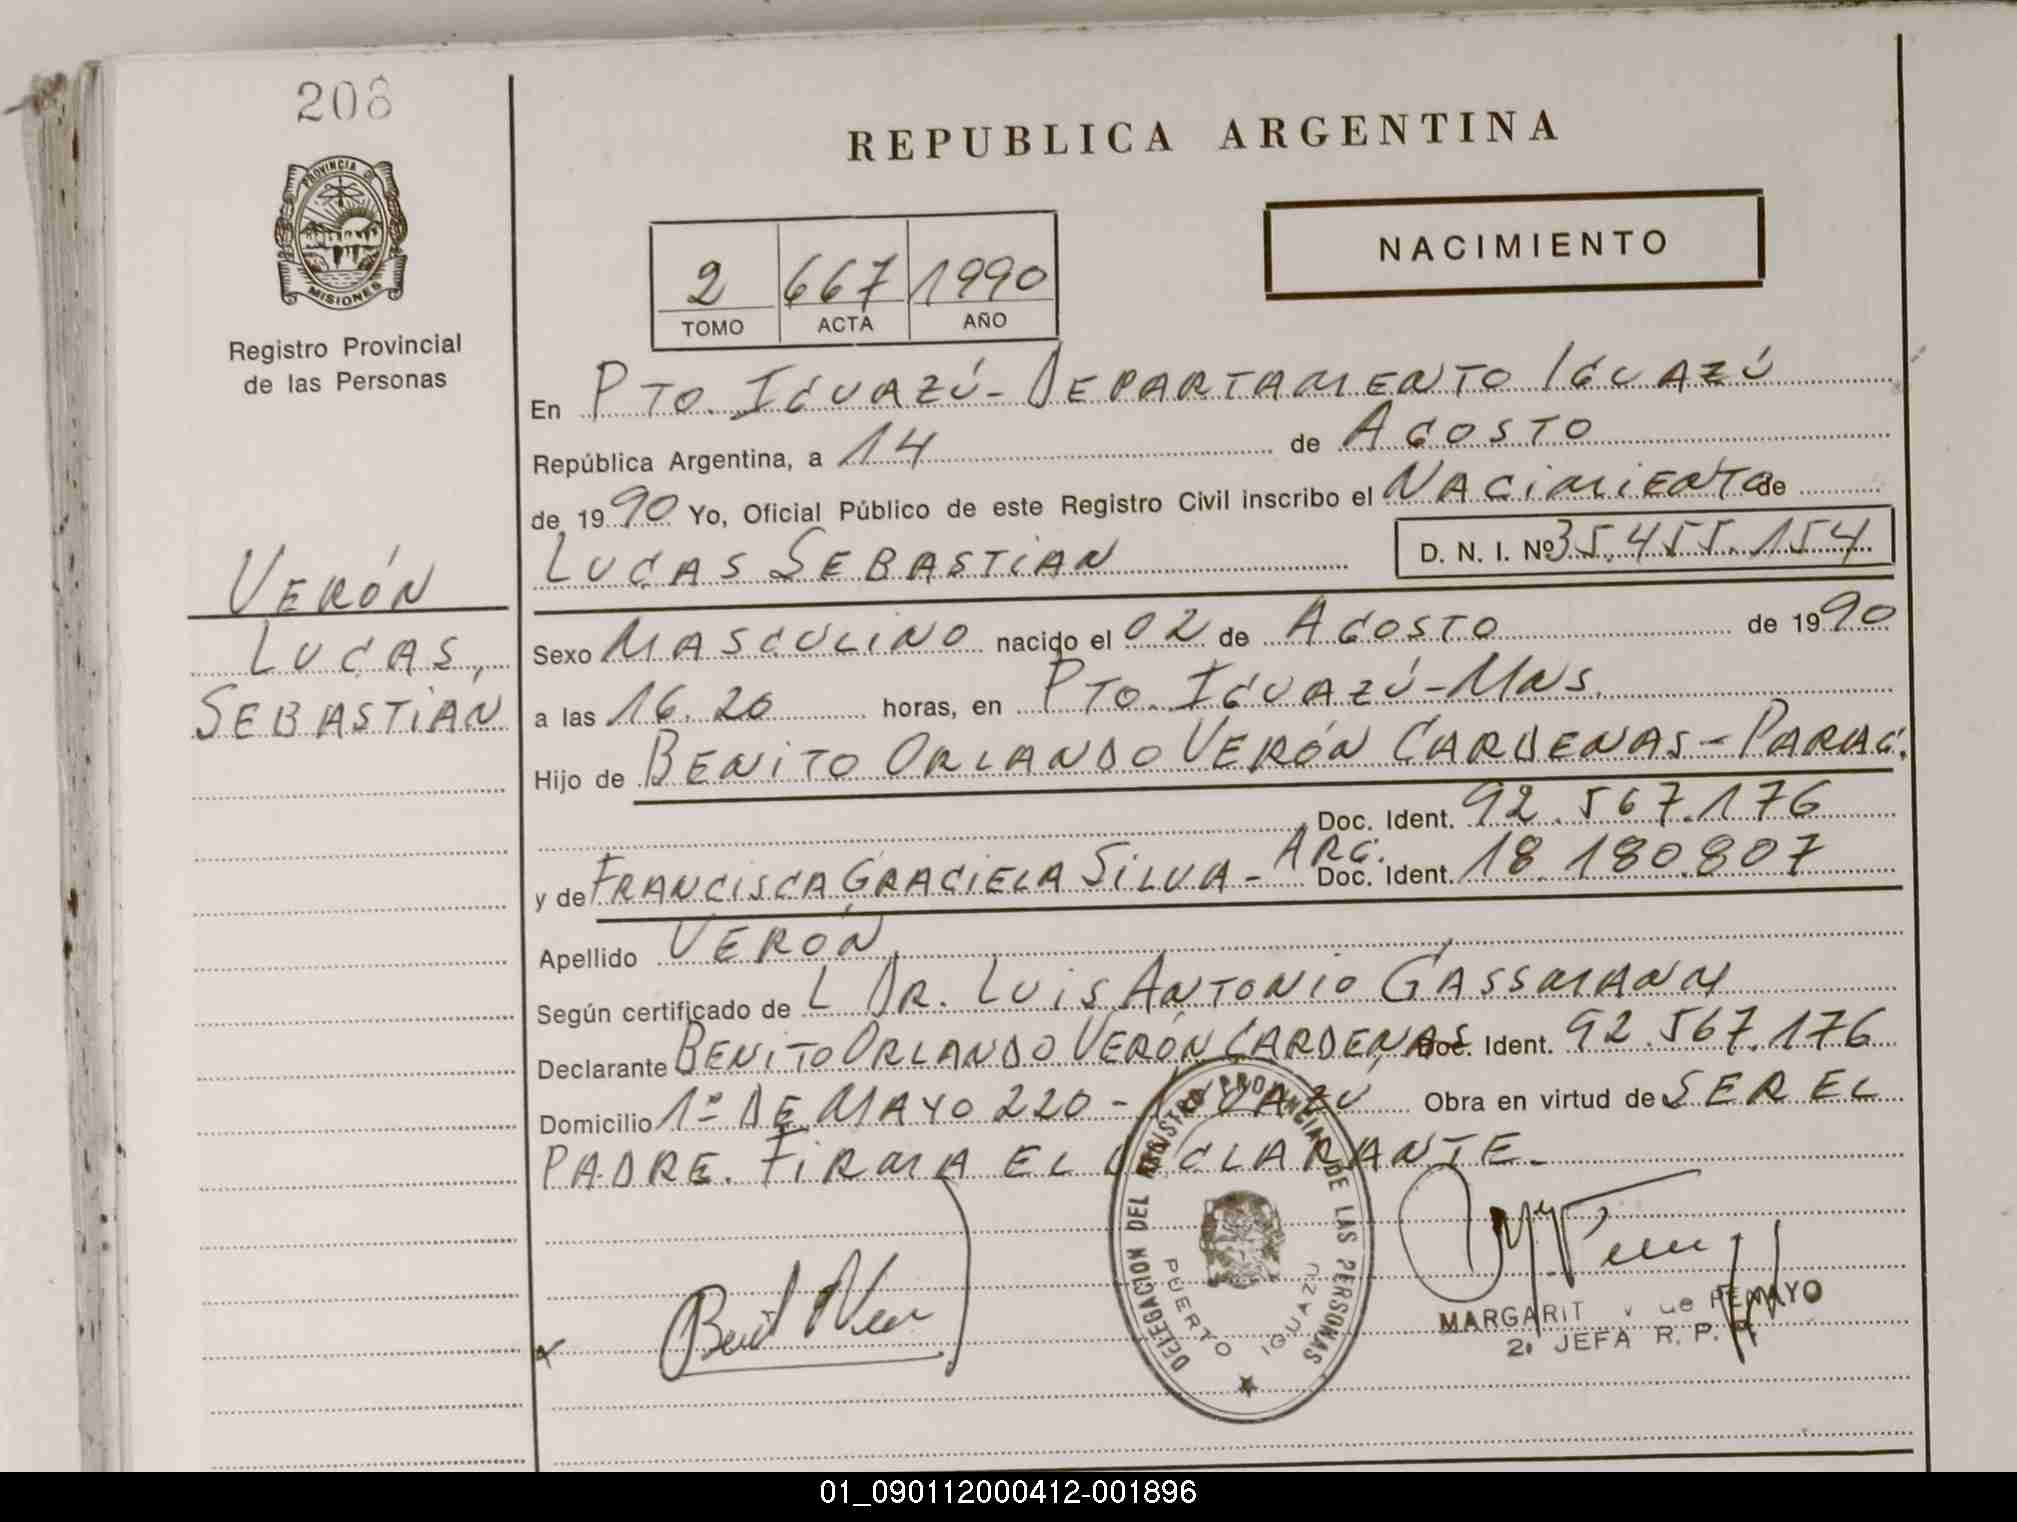 208
PROVINCIA DE
MISIONES
Registro Provincial
de las Personas
VERÓN
LUCAS,
SEBASTIÁN
REPUBLICA ARGENTINA
NACIMIENTO
2 667 1990
TOMO ACTA AÑO
En PTO. IGUAZÚ - DEPARTAMENTO IGUAZÚ
República Argentina, a 14 de AGOSTO
de 1990 Yo, Oficial Público de este Registro Civil inscribo el NACIMIENTO de
LUCAS SEBASTIAN D. N. I. Nº 35.455.154
Sexo MASCULINO nacido el 02 de AGOSTO de 1990
a las 16.20 horas, en PTO. IGUAZÚ - MNS.
Hijo de BENITO ORLANDO VERÓN CARDENAS - PARAG.
Doc. Ident. 92.567.176
y de FRANCISCA GRACIELA SILVA - ARG. Doc. Ident. 18.180.807
Apellido VERÓN
Según certificado de L DR. LUIS ANTONIO GASSMANN
Declarante BENITO ORLANDO VERÓN CARDENAS Doc. Ident. 92.567.176
Domicilio 1º DE MAYO 220 - IGUAZÚ Obra en virtud de SER EL
PADRE. FIRMA EL DECLARANTE.
DELEGACION DEL REGISTRO PROVINCIAL DE LAS PERSONAS
PUERTO IGUAZU
MARGARIT de PENAYO
2ª JEFA R. P. P.
01_090112000412-001896